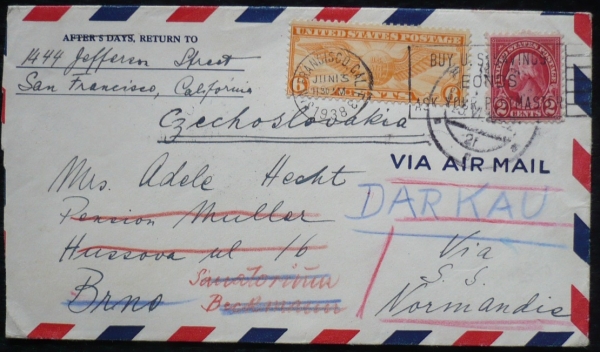 AFTER 5 DAYS, RETURN TO
1444 Jefferson Street
San Francisco, California
UNITED STATES POSTAGE
6 6
SAN FRANCISCO, CALIF.
JUN 15
1938
BUY U.S. SAVINGS
BONDS
ASK YOUR POSTMASTER
UNITED STATES POSTAGE
2 CENTS 2
Czechoslovakia
VIA AIR MAIL
Mrs. Adele Hecht
Pension Muller
Hussova ul 16
Brno
Sanatorium
Beckmann
DARKAU
Via
S.S.
Normandie